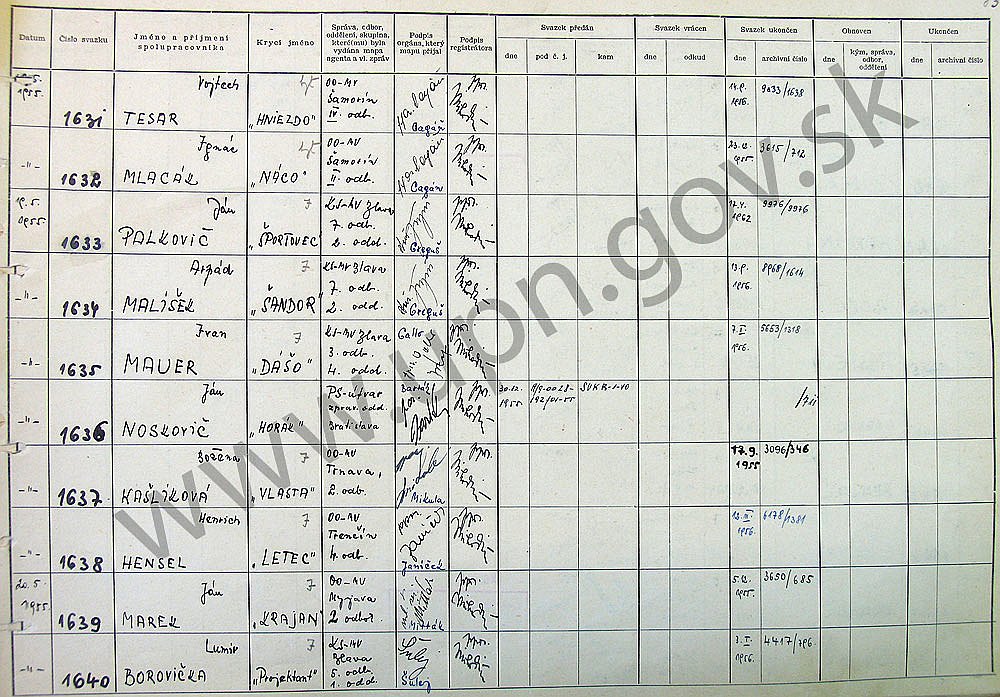 Datum
Číslo svazku
Jméno a příjmení
spolupracovníka
Krycí jméno
Správa, odbor,
oddělení, skupina,
které(mu) byla
vydána mapa
agenta a vl. zpráv
Podpis
orgána, který
mapu přijal
Podpis
registrátora
Svazek předán
dne
pod č. j.
kam
Svazek vrácen
dne
odkud
Svazek ukončen
dne
archivní číslo
Obnoven
dne
kým, správa,
odbor,
oddělení
Ukončen
dne
archivní číslo
1955.
1631
Vojtech
TESAR
"HNIEZDO"
OO-MV
Šamorín
IV. odb.
Cagáň
1956.
9033/1638
-"-
1632
Ignác
MLACÁK
"NÁCO"
OO-MV
Šamorín
II. odb.
Cagáň
1955.
3615/712
19.5.
1955.
1633
Ján
PALKOVIČ
"ŠPORTOVEC"
7
KS-MV Blava
7. odb.
2. odd.
Greguš
17.4.
1962
9976/9976
-"-
1634
Arpád
MALÍŠEK
"ŠANDOR"
7
KS-MV Blava
7. odb.
2. odd.
Greguš
1956.
8968/1614
-"-
1635
Ivan
MAUER
"DÁŠO"
7
KS-MV Blava
3. odb.
4. odd.
Gallo
7.II.
1956.
5653/1318
-"-
1636
Ján
NOSKOVIČ
"HORÁK"
7
PS-útvar
zprav. odd.
Bratislava
30.12.
1955
-"-
1637
Božena
KAŠLÍKOVÁ
"VLASTA"
7
OO-MV
Trnava,
2. odb.
Mikula
17.9.
1955
3096/346
-"-
1638
Henrich
HENSEL
"LETEC"
7
OO-MV
Trenčín
4. odb.
Janíček
1956.
6178/1381
20.5.
1955.
1639
Ján
MAREK
"KRAJAN"
7
OO-MV
Myjava
2 odbor.
5.12.
1955.
3650/685
-"-
1640
Lumír
BOROVIČKA
"Projektant"
7
KS-MV
Blava
5. odb.
1. odd.
Šulej
3.I.
1956.
4417/796
www.upn.gov.sk